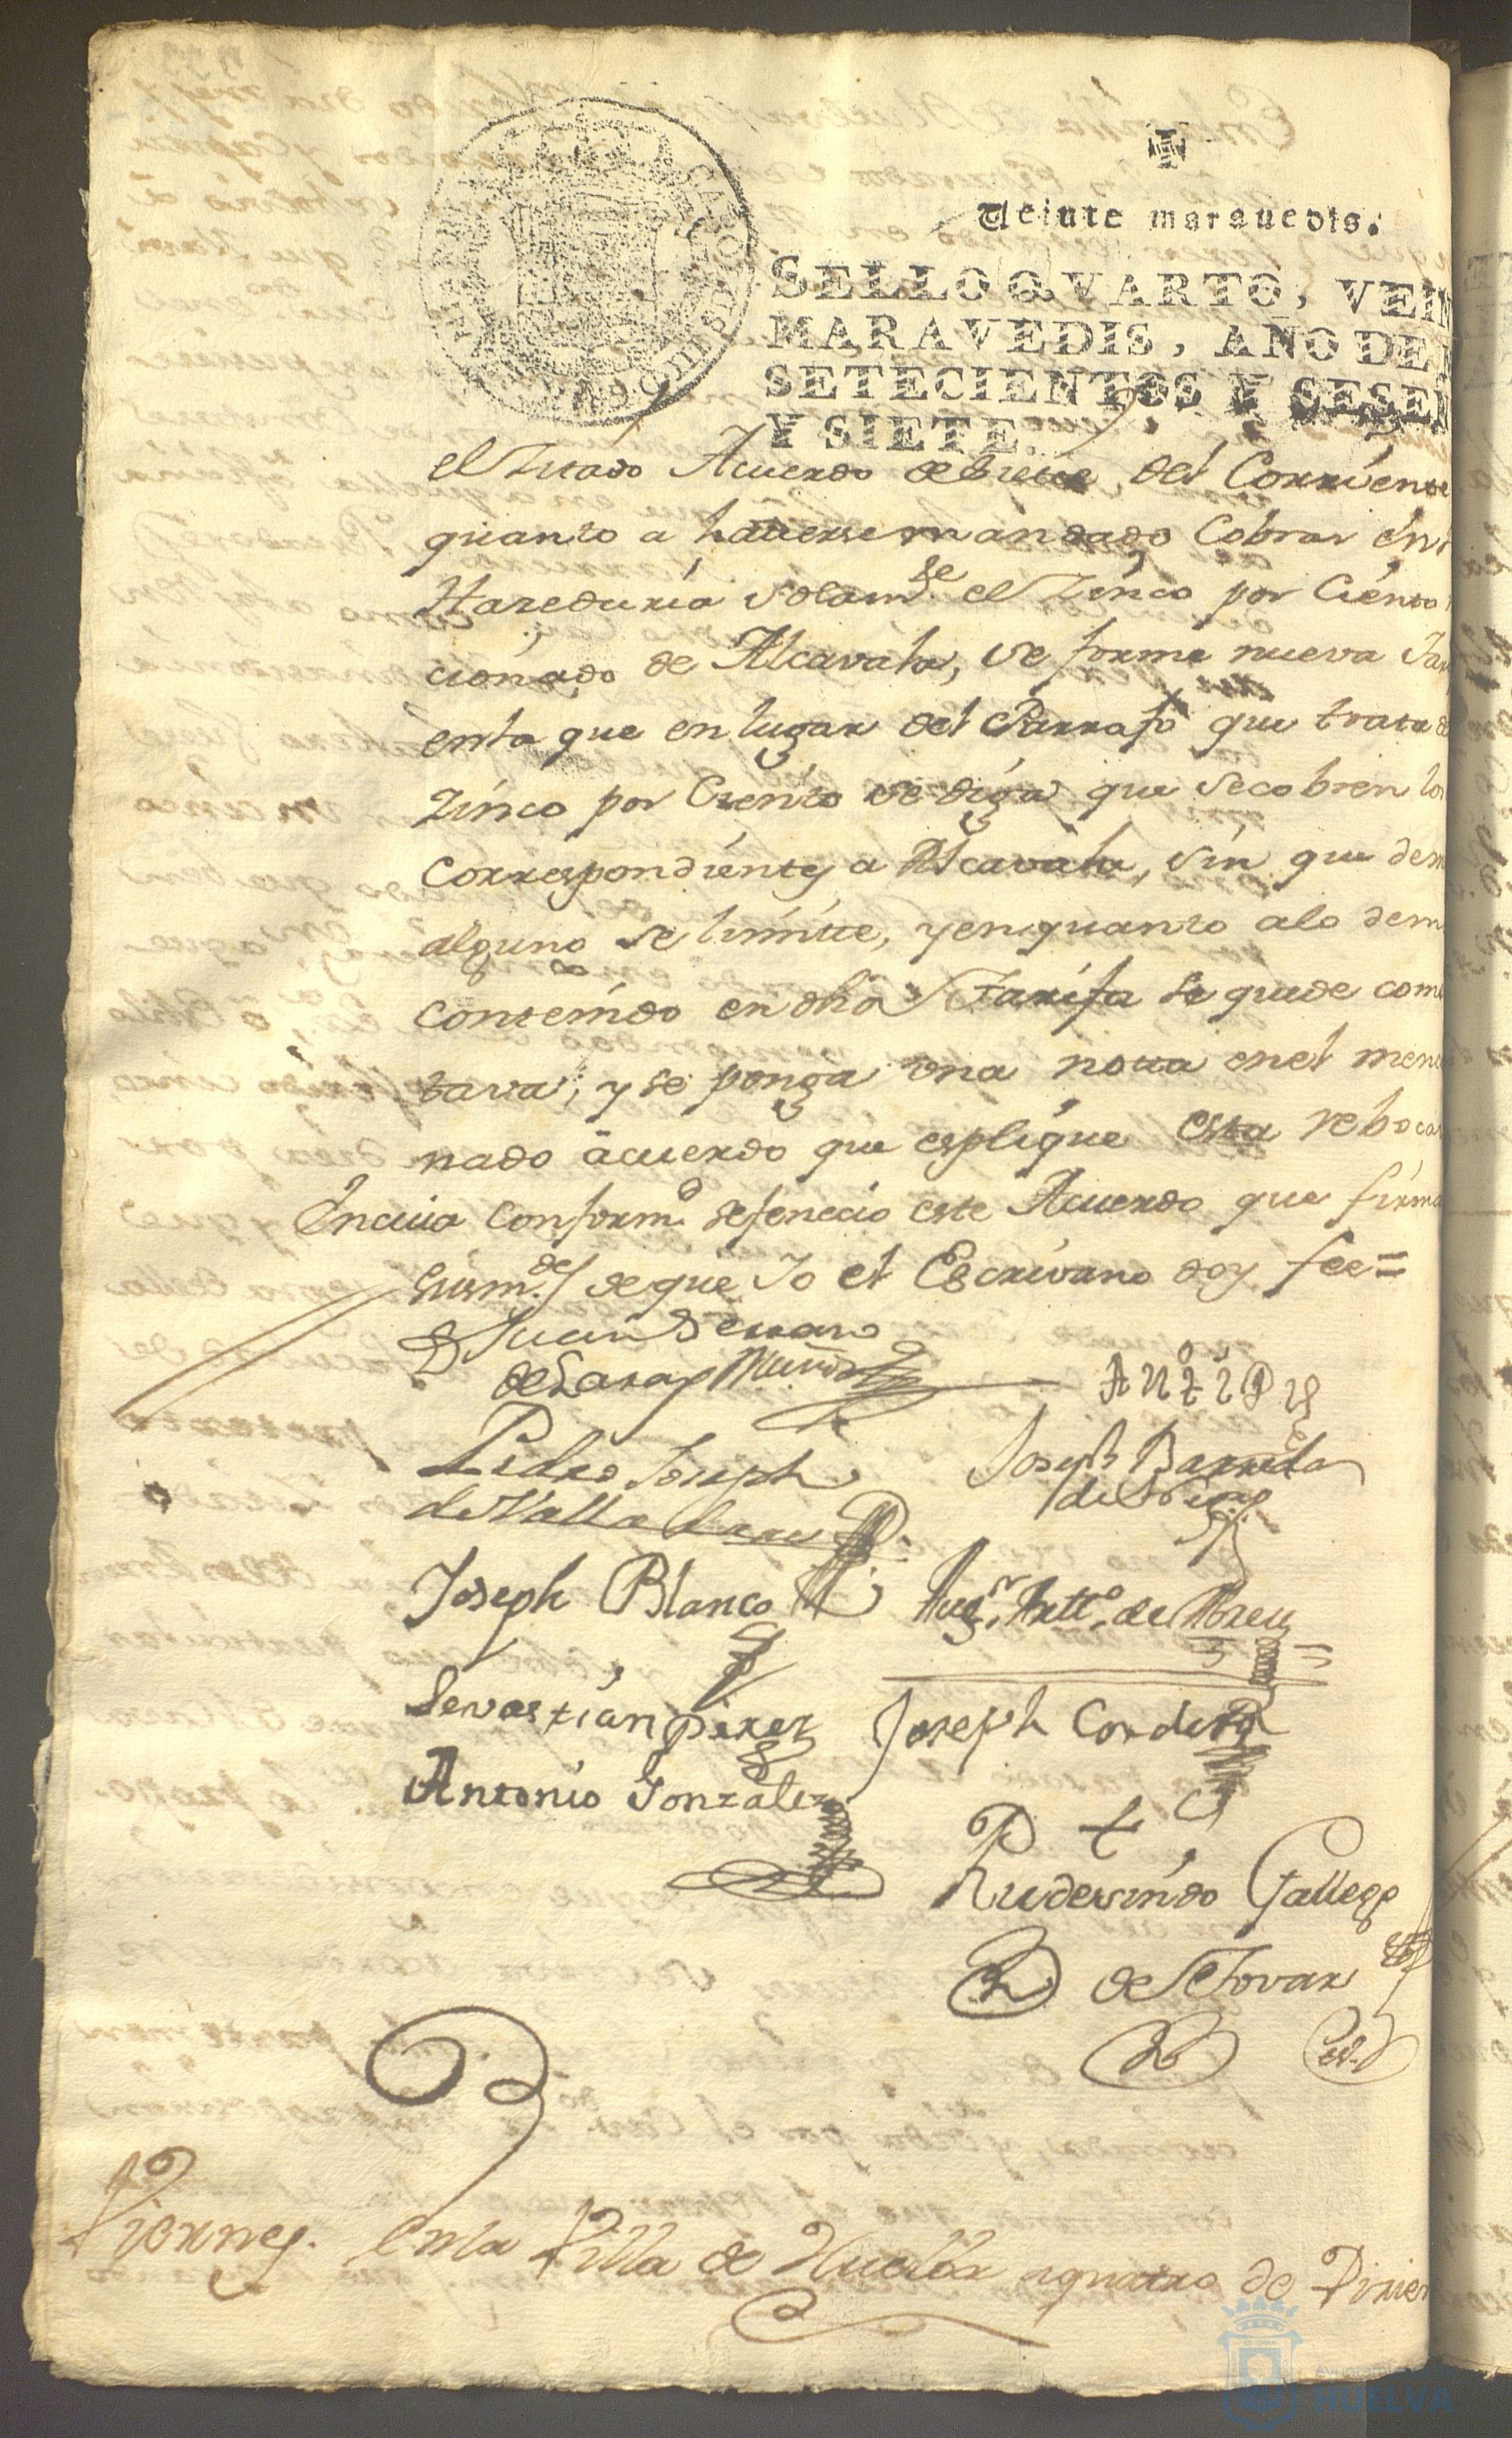 Veinte maravedis.
SELLO QVARTO, VEIN
MARAVEDIS, AÑO DE
SETECIENTOS Y SESEN
Y SIETE.
el zitado Acuerdo de del Corriente
quanto a haverse mandado Cobrar en
Hazeduria Solamte. el Zinco por Ciento
cionado de Alcavala, se forme nueva Tar
enta que en lugar del Parrafo que trata de
Zinco por Ciento se diga que se cobren los
correspondientes a Alcavala, sin que dem
alguno se limite, y en quanto a lo dem
contenido en dha Tarifa se quede como
tava, y se ponga una nota en el menc
nado acuerdo que esplique esta reboca
En cuia conformd. se fenecio este Acuerdo que firma
susmdes. de que Yo el Escrivano doy fee=
Dn Juan Serrano
de Lara y Muñoz
Pedro Joseph
de Valladares
Joseph Barreda
Joseph Blanco
Augn. Antto. de Mora
Sevastian perez
Joseph Cordero
Antonio Gonzalez
Rudesindo Gallego
de Tovar
Viernes.
En la Villa de Huelba a quatro de Diziem
Ayuntamiento
HUELVA